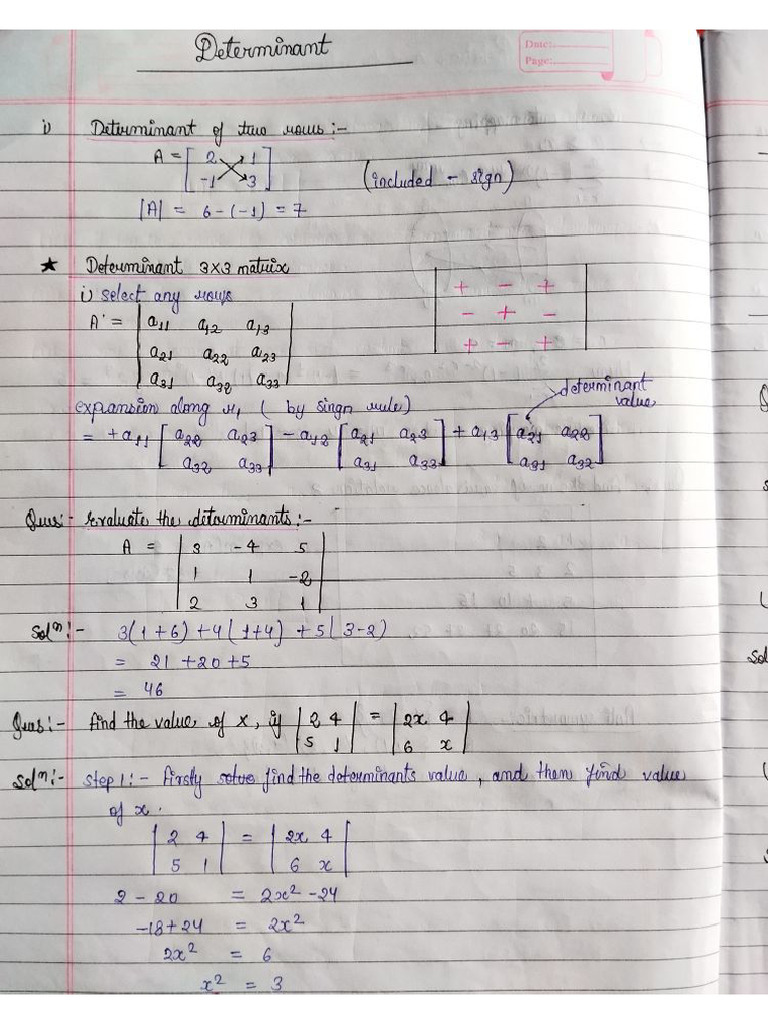 Determinant
Date:
Page:
i) Determinant of two rows:-
A = [ 2 1
-1 3 ]
(included - sign)
|A| = 6-(-1) = 7
★ Determinant 3x3 matrix
i) select any rows
+ - +
- + -
+ - +
A = | a11 a12 a13
a21 a22 a23
a31 a32 a33 |
expansion along r1 ( by singn rule)
determinant value
= +a11 [ a22 a23 ] -a12 [ a21 a23 ] +a13 [ a21 a22 ]
a32 a33 a31 a33 a31 a32
Ques:- Evaluate the determinants:-
A = | 3 -4 5
1 1 -2
2 3 1 |
Solⁿ:- 3(1+6) +4(1+4) +5(3-2)
= 21 +20 +5
= 46
Ques:- find the value of x, if | 2 4 | = | 2x 4 |
5 1 6 x
Solⁿ:- Step 1:- firstly solve find the determinants value, and then find value
of x.
| 2 4 | = | 2x 4 |
5 1 6 x
2 - 20 = 2x² -24
-18+24 = 2x²
2x² = 6
x² = 3